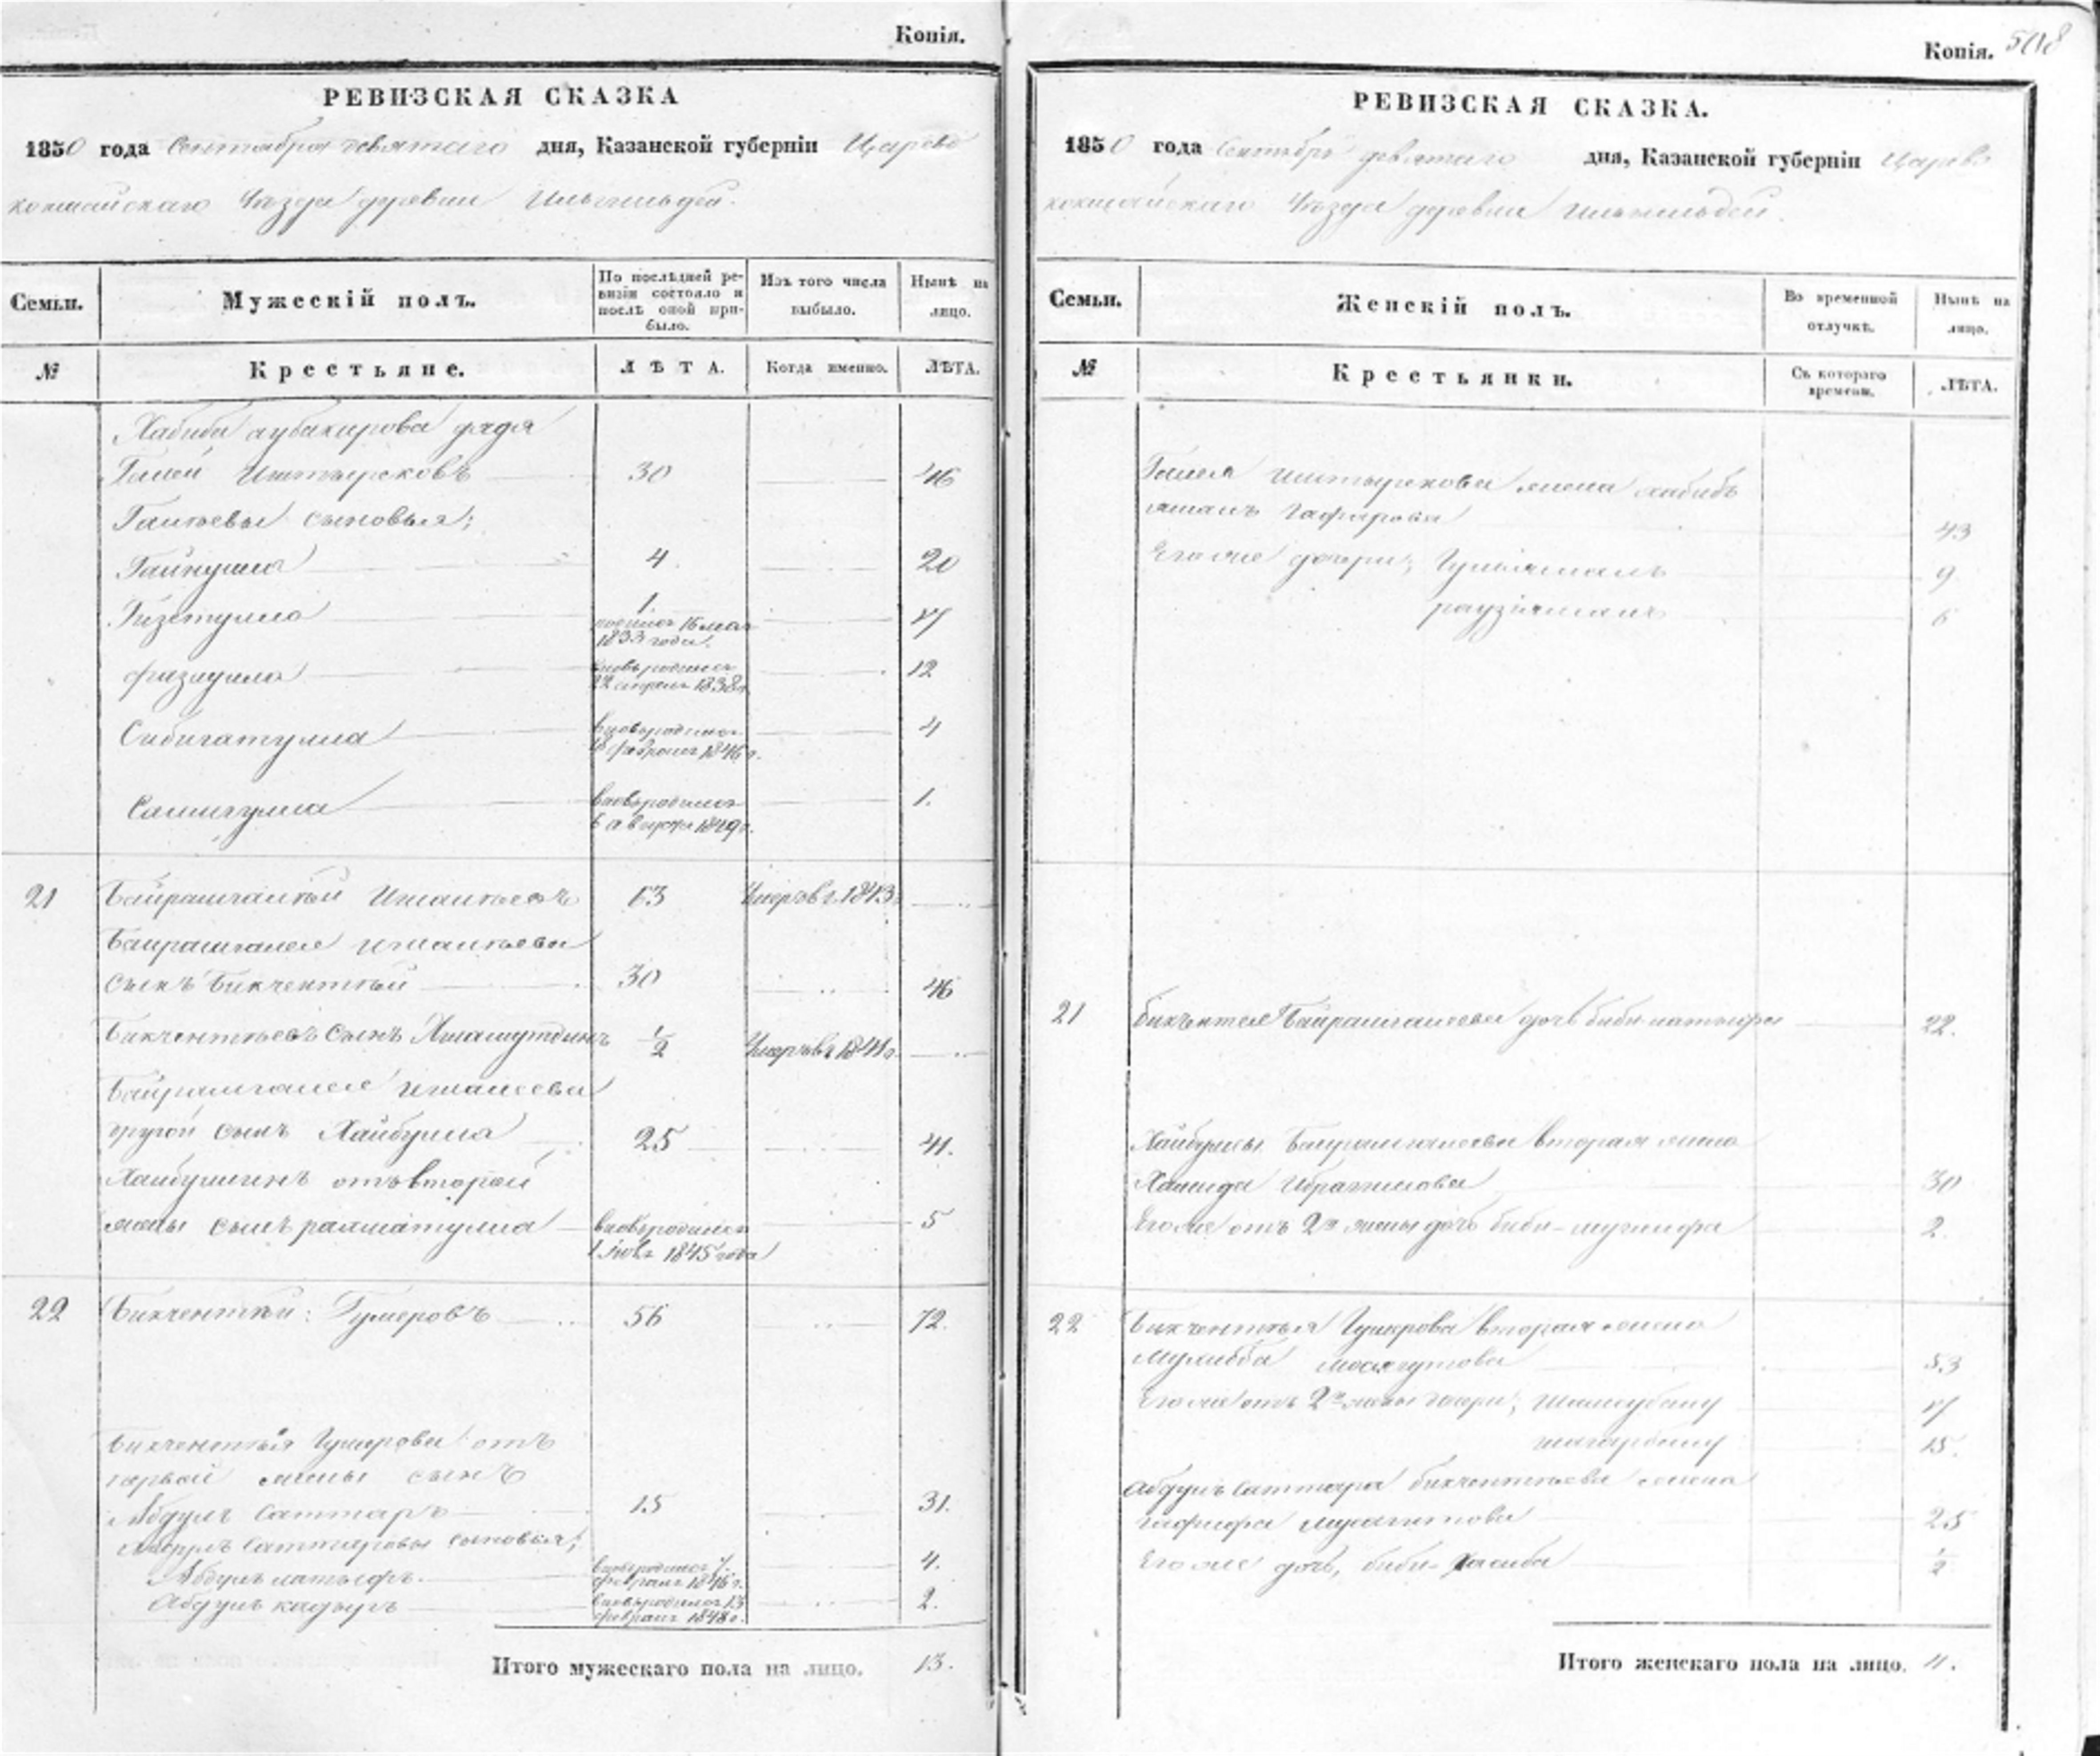 Копія.
РЕВИЗСКАЯ СКАЗКА
1850 года Сентября девятаго дня, Казанской губерніи Царево
кокшайскаго Уѣзда деревни
Семьи.
Мужескій полъ.
По послѣдней ре-
визіи состояло и
послѣ оной при-
было.
Изъ того числа
выбыло.
Нынѣ на
лицо.
№
Крестьяне.
ЛѢТА.
Когда именно.
ЛѢТА.
Хабиба аубакирова дядя
Галей Иштыряковъ 30 46
Галѣевы сыновья;
Гайнулла 4. 20
Гизетулла 1
родился 16 мая
1833 года.
17
фазлулла вновьродился
22 апреля 1838г. 12
Сибигатулла вновьродился
февраля 1846г. 4
Салигулла вновьродился
6 августа 1849г. 1.
21 Байрамгалѣй Ишалѣевъ 63 Умеръ въ 1843г
Байрамгалея ишалѣева
сынъ Бикчентѣй 30 46
Бикчентѣевъ сынъ ½ Умеръ въ 1841г.
Байрамгалея ишалеева
другой сынъ Хайбулла 25 41.
Хайбуллинъ отъ второй
жены сынъ рахматулла вновьродился
1845 года 5
22 Бикчентѣй Гумеровъ 56 72.
Бикчентѣя Гумерова отъ
первой жены сынъ
Абдулъ Саттаръ 15 31.
Абдулъ Саттаровы сыновья;
Абдулъ латыфъ. вновьродился 7.
февраля 1846г. 4.
Абдулъ кадыръ вновьродился 13
февраля 1848г. 2.
Итого мужескаго пола на лицо. 13.
Копія. 508
РЕВИЗСКАЯ СКАЗКА.
1850 года Сентября девятаго дня, Казанской губерніи Царево
кокшайскаго Уѣзда деревни
Семьи.
Женскій полъ.
Во временной
отлучкѣ.
Нынѣ на
лицо.
№
Крестьянки.
Съ котораго
времени.
ЛѢТА.
Галея иштырякова жена хабибъ
ямалъ Гафарова 43
Его же дочери; Гульямалъ 9
раузіямалъ 6
21 бикчентея Байрамгалеева дочь биби латыфа 22.
Хайбуллы Байрамгалеева вторая жена
Хамида Ибрагимова 30
Его же отъ 2й жены дочь биби- 2.
22 Бикчентѣя Гумерова вторая жена
Мухибба 53
Его же отъ 2й жены дочери; Шамсубану 17
15.
Абдулъ Саттара бикчентѣева жена
25
Его же дочь, биби- Хасиба ½
Итого женскаго пола на лицо. 11.